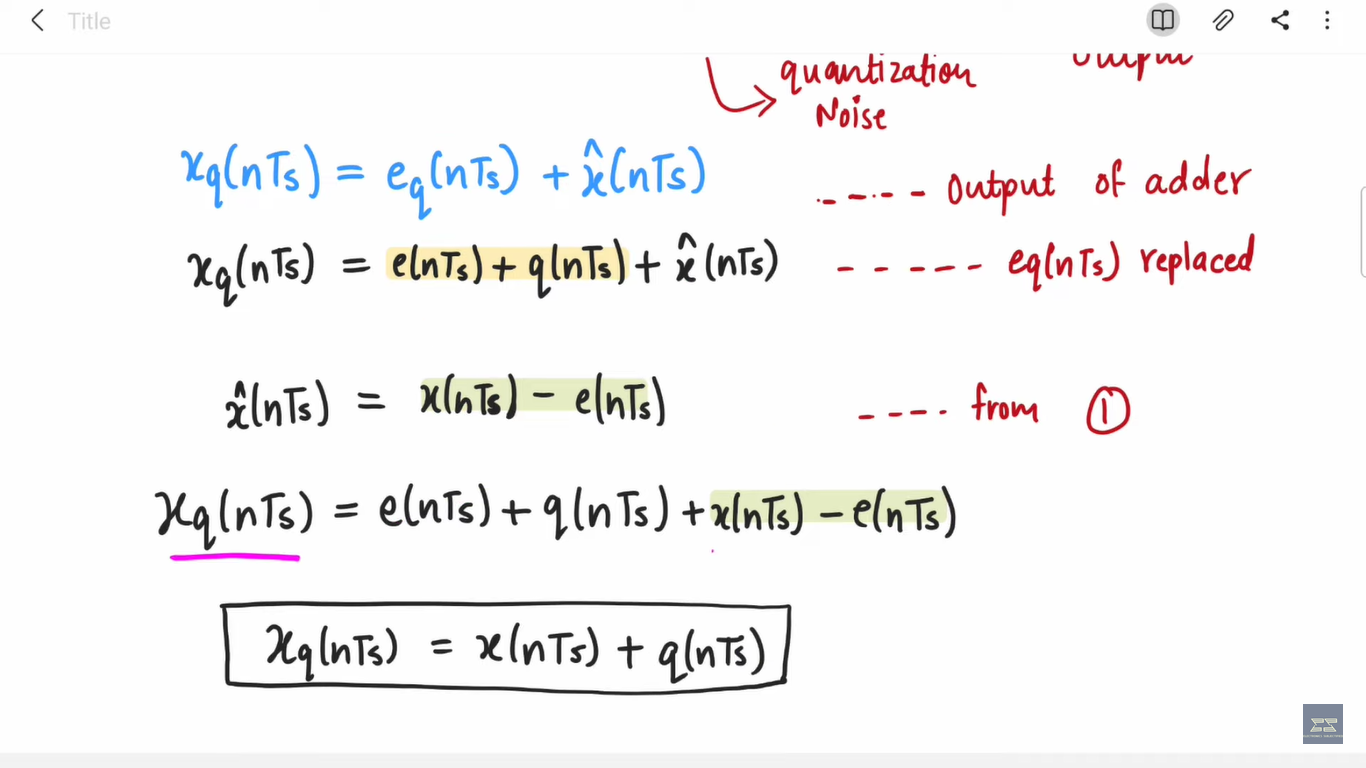 Title
quantization
Noise
xq(nTs) = eq(nTs) + x̂(nTs) ----- Output of adder
xq(nTs) = e(nTs) + q(nTs) + x̂(nTs) ----- eq(nTs) replaced
x̂(nTs) = x(nTs) - e(nTs) ---- from ①
xq(nTs) = e(nTs) + q(nTs) + x(nTs) - e(nTs)
xq(nTs) = x(nTs) + q(nTs)